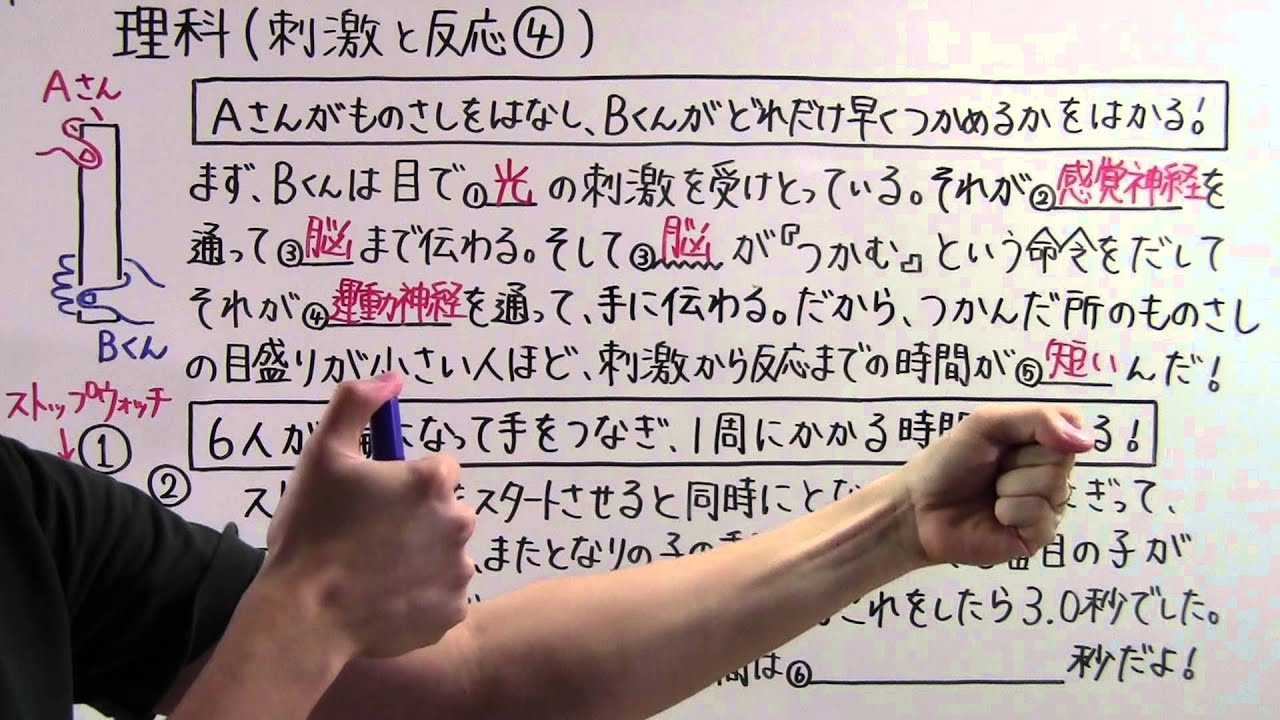 理科(刺激と反応④)
Aさん
AさんがものさしをはなしBくんがどれだけ早くつかめるかをはかる!
まず、Bくんは目で①光の刺激を受けとっている。それが②感覚神経を
通って③脳まで伝わる。そして③脳が『つかむ』という命令をだして
それが④運動神経を通って、手に伝わる。だから、つかんだ所のものさし
Bくん
の目盛りが小さい人ほど、刺激から反応までの時間が⑤短いんだ!
ストップウォッチ
①
6人が になって手をつなぎ、1周にかかる時間 る!
②
スト をスタートさせると同時にとな ぎって、
、またとなりの子の 目の子が
これをしたら3.0秒でした。
間は⑥ 秒だよ!